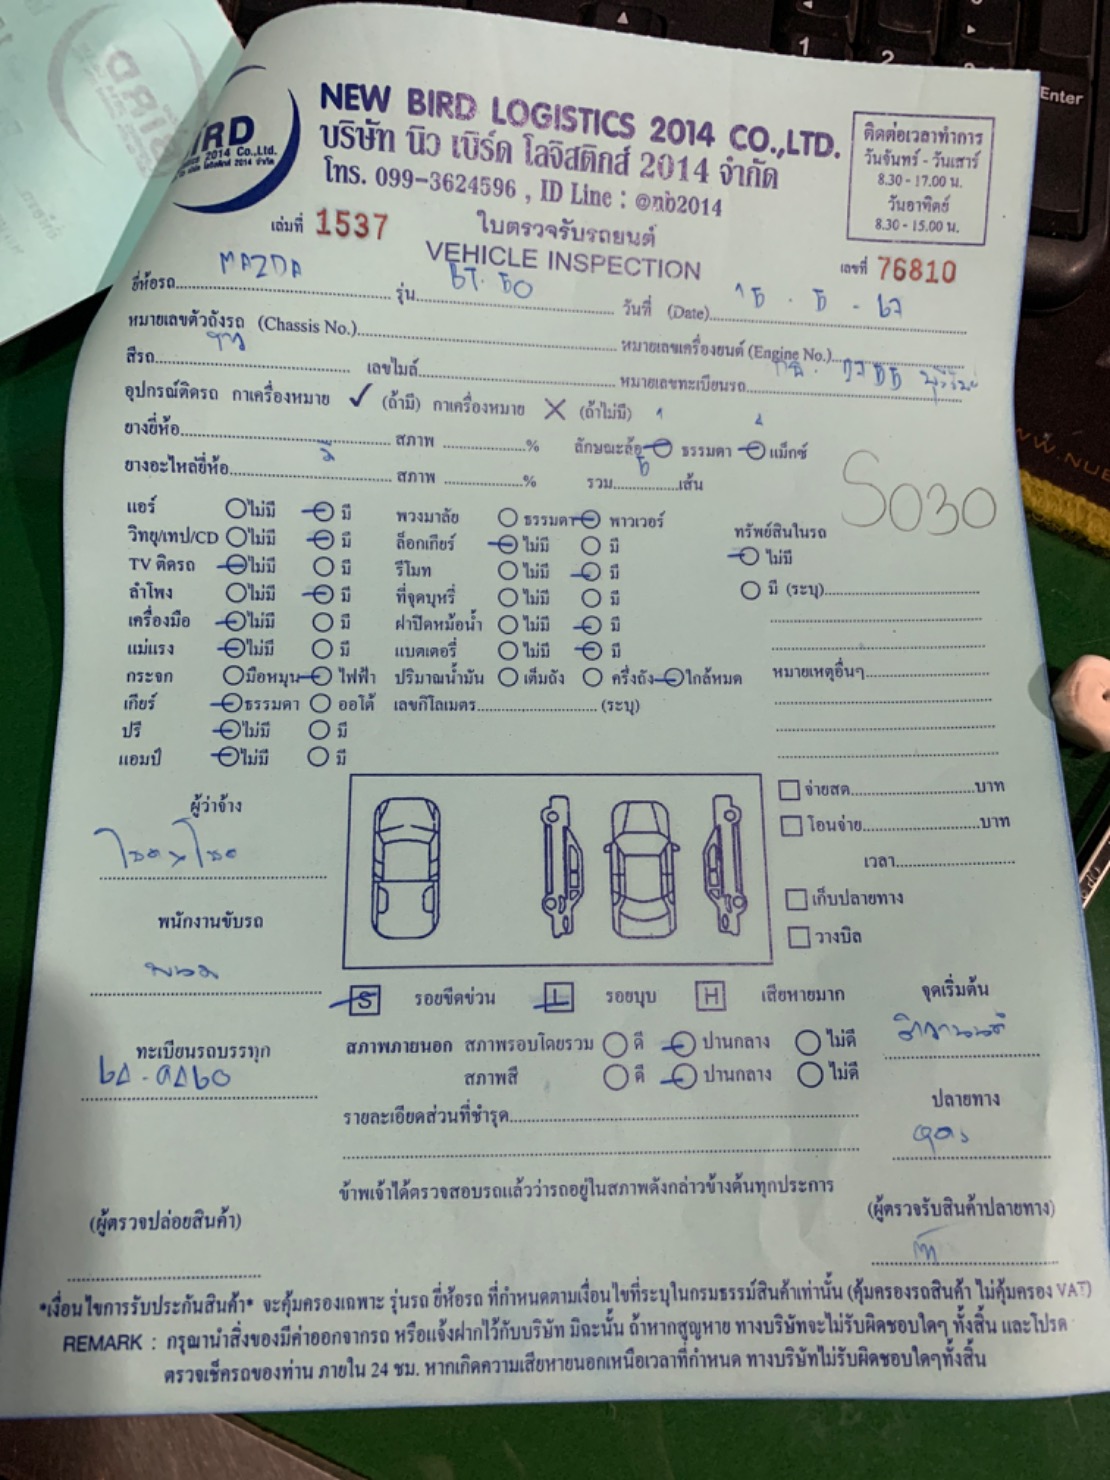 NEW BIRD LOGISTICS 2014 CO.,LTD.
บริษัท นิว เบิร์ด โลจิสติกส์ 2014 จำกัด
โทร. 099-3624596 , ID Line : @nb2014
ติดต่อเวลาทำการ
วันจันทร์ - วันเสาร์
8.30 - 17.00 น.
วันอาทิตย์
8.30 - 15.00 น.
เล่มที่ 1537
ใบตรวจรับรถยนต์
VEHICLE INSPECTION
เลขที่ 76810
ยี่ห้อรถ MAZDA รุ่น BT. 50 วันที่ (Date)
หมายเลขตัวถังรถ (Chassis No.) หมายเลขเครื่องยนต์ (Engine No.)
สีรถ เลขไมล์ หมายเลขทะเบียนรถ
อุปกรณ์ติดรถ กาเครื่องหมาย ✓ (ถ้ามี) กาเครื่องหมาย ✕ (ถ้าไม่มี)
ยางยี่ห้อ สภาพ % ลักษณะล้อ ธรรมดา แม็กซ์
ยางอะไหล่ยี่ห้อ มี สภาพ % รวม 5 เส้น
S030
แอร์ ไม่มี มี พวงมาลัย ธรรมดา พาวเวอร์
ทรัพย์สินในรถ
วิทยุ/เทป/CD ไม่มี มี ล็อกเกียร์ ไม่มี มี
ไม่มี
TV ติดรถ ไม่มี มี รีโมท ไม่มี มี
มี (ระบุ)
ลำโพง ไม่มี มี ที่จุดบุหรี่ ไม่มี มี
เครื่องมือ ไม่มี มี ฝาปิดหม้อน้ำ ไม่มี มี
แม่แรง ไม่มี มี แบตเตอรี่ ไม่มี มี
กระจก มือหมุน ไฟฟ้า ปริมาณน้ำมัน เต็มถัง ครึ่งถัง ใกล้หมด
หมายเหตุอื่นๆ
เกียร์ ธรรมดา ออโต้ เลขกิโลเมตร (ระบุ)
ปรี ไม่มี มี
แอมป์ ไม่มี มี
จ่ายสด บาท
โอนจ่าย บาท
เวลา
เก็บปลายทาง
วางบิล
ผู้ว่าจ้าง
พนักงานขับรถ
S รอยขีดข่วน L รอยบุบ H เสียหายมาก
จุดเริ่มต้น
ทะเบียนรถบรรทุก
สภาพภายนอก สภาพรอบโดยรวม ดี ปานกลาง ไม่ดี
สภาพสี ดี ปานกลาง ไม่ดี
รายละเอียดส่วนที่ชำรุด
ปลายทาง
ข้าพเจ้าได้ตรวจสอบรถแล้วว่ารถอยู่ในสภาพดังกล่าวข้างต้นทุกประการ
(ผู้ตรวจปล่อยสินค้า)
(ผู้ตรวจรับสินค้าปลายทาง)
*เงื่อนไขการรับประกันสินค้า* จะคุ้มครองเฉพาะ รุ่นรถ ยี่ห้อรถ ที่กำหนดตามเงื่อนไขที่ระบุในกรมธรรม์สินค้าเท่านั้น (คุ้มครองรถสินค้า ไม่คุ้มครอง VAT)
REMARK : กรุณานำสิ่งของมีค่าออกจากรถ หรือแจ้งฝากไว้กับบริษัท มิฉะนั้น ถ้าหากสูญหาย ทางบริษัทจะไม่รับผิดชอบใดๆ ทั้งสิ้น และโปรด
ตรวจเช็ครถของท่าน ภายใน 24 ชม. หากเกิดความเสียหายนอกเหนือเวลาที่กำหนด ทางบริษัทไม่รับผิดชอบใดๆทั้งสิ้น